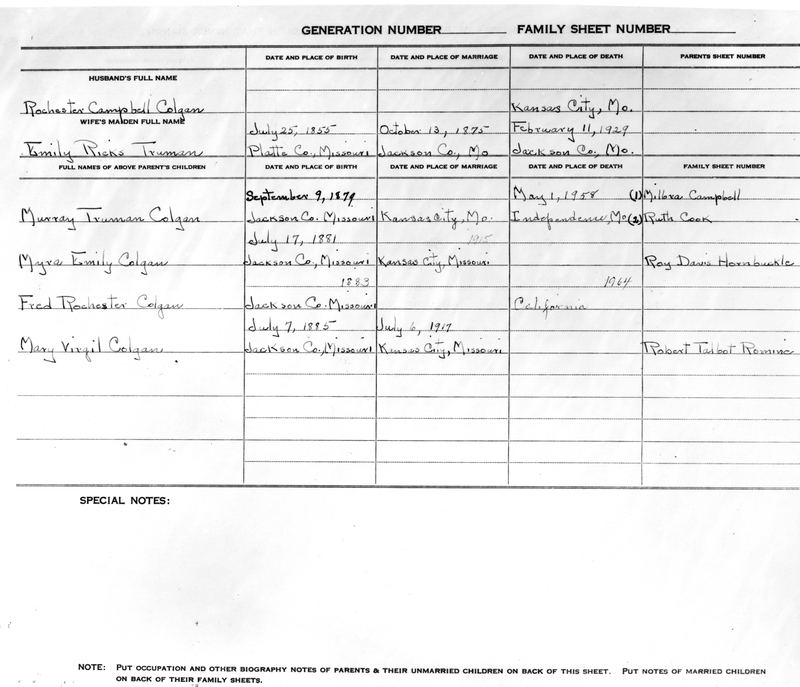 GENERATION NUMBER FAMILY SHEET NUMBER
DATE AND PLACE OF BIRTH DATE AND PLACE OF MARRIAGE DATE AND PLACE OF DEATH PARENTS SHEET NUMBER
HUSBAND'S FULL NAME
Rochester Campbell Colgan Kansas City, Mo.
WIFE'S MAIDEN FULL NAME July 25, 1855 October 13, 1875 February 11, 1929
Emily Ricks Truman Platte Co., Missouri Jackson Co., Mo Jackson Co., Mo.
FULL NAMES OF ABOVE PARENT'S CHILDREN DATE AND PLACE OF BIRTH DATE AND PLACE OF MARRIAGE DATE AND PLACE OF DEATH FAMILY SHEET NUMBER
September 9, 1879 May 1, 1958 (1) Milbra Campbell
Murray Truman Colgan Jackson Co. Missouri Kansas City, Mo. Independence, Mo (2) Ruth Cook
July 17, 1881 1915
Myra Emily Colgan Jackson Co., Missouri Kansas City, Missouri Roy Davis Hornbuckle
1883 1964
Fred Rochester Colgan Jackson Co. Missouri California
July 7, 1885 July 6, 1917
Mary Virgil Colgan Jackson Co., Missouri Kansas City, Missouri Robert Talbot Romine
SPECIAL NOTES:
NOTE: PUT OCCUPATION AND OTHER BIOGRAPHY NOTES OF PARENTS & THEIR UNMARRIED CHILDREN ON BACK OF THIS SHEET. PUT NOTES OF MARRIED CHILDREN
ON BACK OF THEIR FAMILY SHEETS.